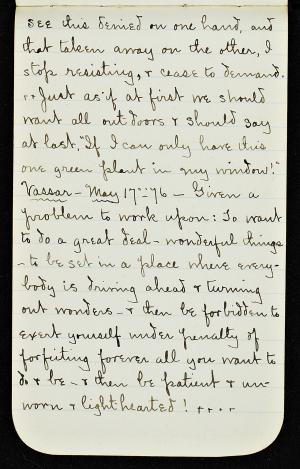 see this denied on one hand, and
that taken away on the other, I
stop resisting, & cease to demand.
..Just as if at first we should
want all outdoors & should say
at last, "If I can only have this
one green plant in my window!"
Vassar - May 17: '76 - Given a
problem to work upon: To want
to do a great deal - wonderful things
- to be set in a place where every-
body is driving ahead & turning
out wonders - & then be forbidden to
exert yourself under penalty of
forfeiting forever all you want to
do & be - & then be patient & un-
worn & light-hearted! ....